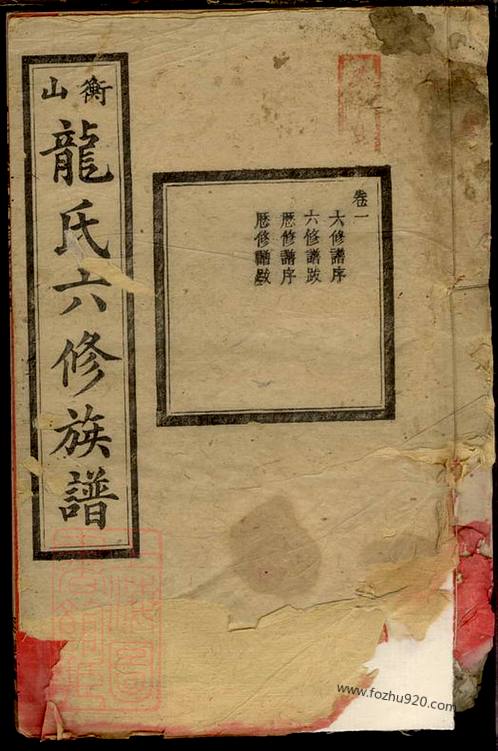 衡山
龍氏六修族譜
卷一
六修譜序
六修譜跋
歷修譜序
歷修譜跋
www.fozhu920.com